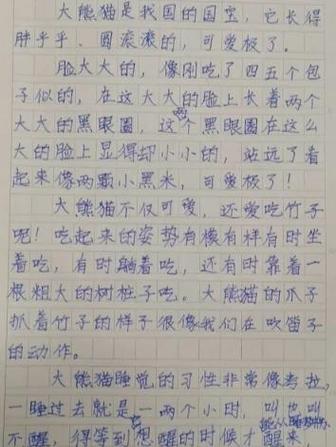 大熊猫是我国的国宝，它长得
胖乎乎、圆滚滚的，可爱极了。
脸大大的，像刚吃了四五个包
子似的，在这大大的脸上长着两个
大大的黑眼圈，这个黑眼圈在这么
大的脸上显得却小小的，站远了看
起来像两颗小黑米，可爱极了！
大熊猫不仅可爱，还爱吃竹子
呢！吃起来的姿势有模有样有时坐
着吃，有时躺着吃，还有时靠着一
根粗大的树桩子吃。大熊猫的爪子
抓着竹子的样子很像我们在吹笛子
的动作。
大熊猫睡觉的习性非常像考拉，
一睡过去就是一两个小时，叫也叫
不醒，得等到想醒的时候才醒来